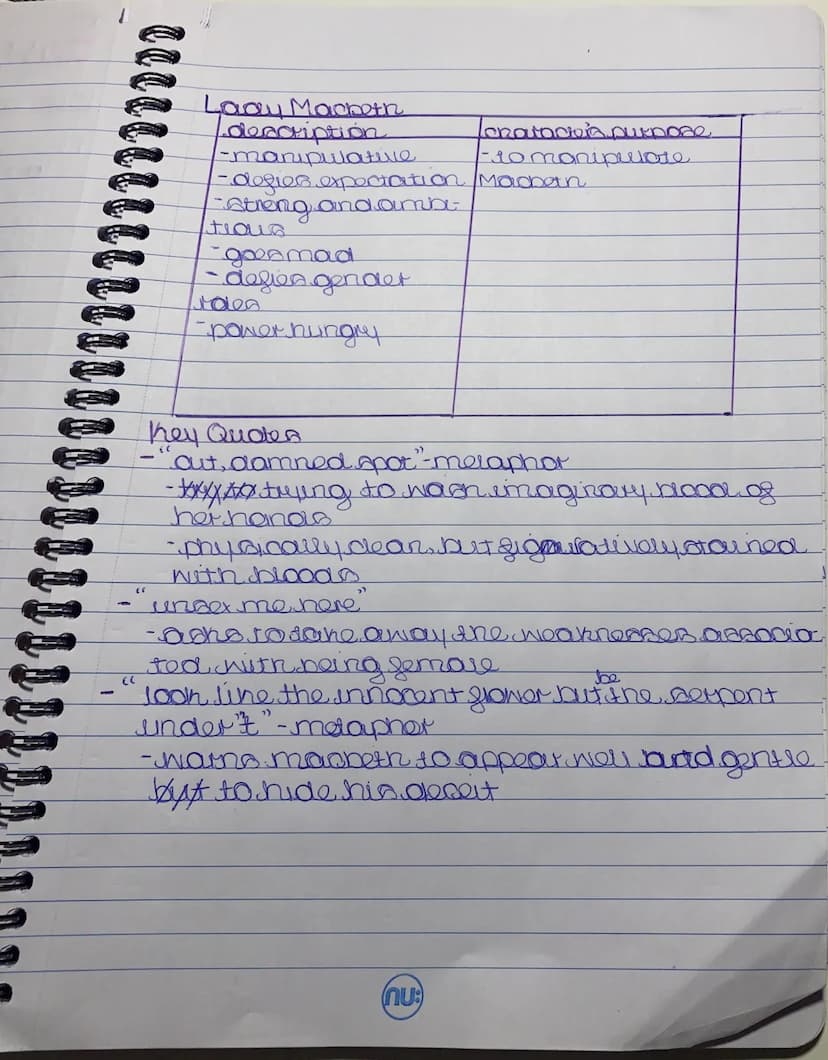 Lady Macbeth
description
character's purpose
-manipulative
-to manipulate
-defies expectation
Macbeth
-strong and ambi-
tious
-goes mad
-defies gender
roles
-power hungry
Key Quotes
-"out, damned spot"-metaphor
-trying to wash imaginary blood of
her hands
-physically clean, but figuratively stained
with bloods
-"unsex me here"
-asks to take away the weaknesses associa
ted with being female
-"look like the innocent flower but be the serpent
under't"-metaphor
-warns macbeth to appear well and gentle
to hide his deceit
nu: